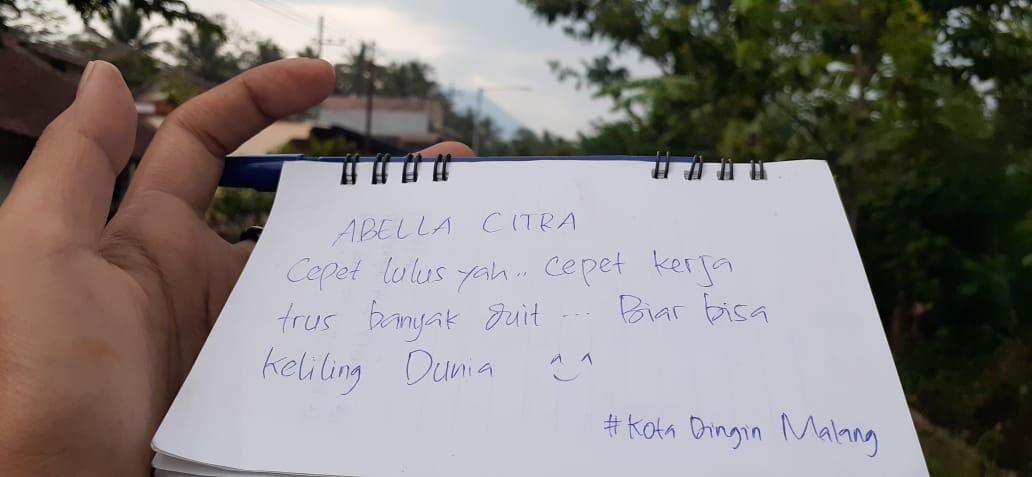 ABELLA CITRA
Cepet lulus yah.. cepet kerja
trus banyak duit ... Biar bisa
keliling Dunia ^‿^
#Kota Dingin Malang